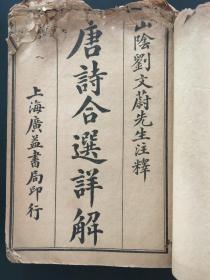 山陰劉文蔚先生注釋
唐詩合選詳解
上海廣益書局印行